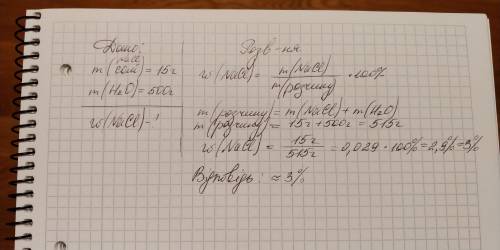 Дано:
NaCl
m(солі) = 15г
m(H₂O) = 500г
w(NaCl) - ?
Розв-ня
w(NaCl) = m(NaCl) / m(розчину) · 100%
m(розчину) = m(NaCl) + m(H₂O)
m(розчину) = 15г + 500г = 515г
w(NaCl) = 15г / 515г = 0,029 · 100% = 2,9% = 3%
Відповідь: ≈ 3%